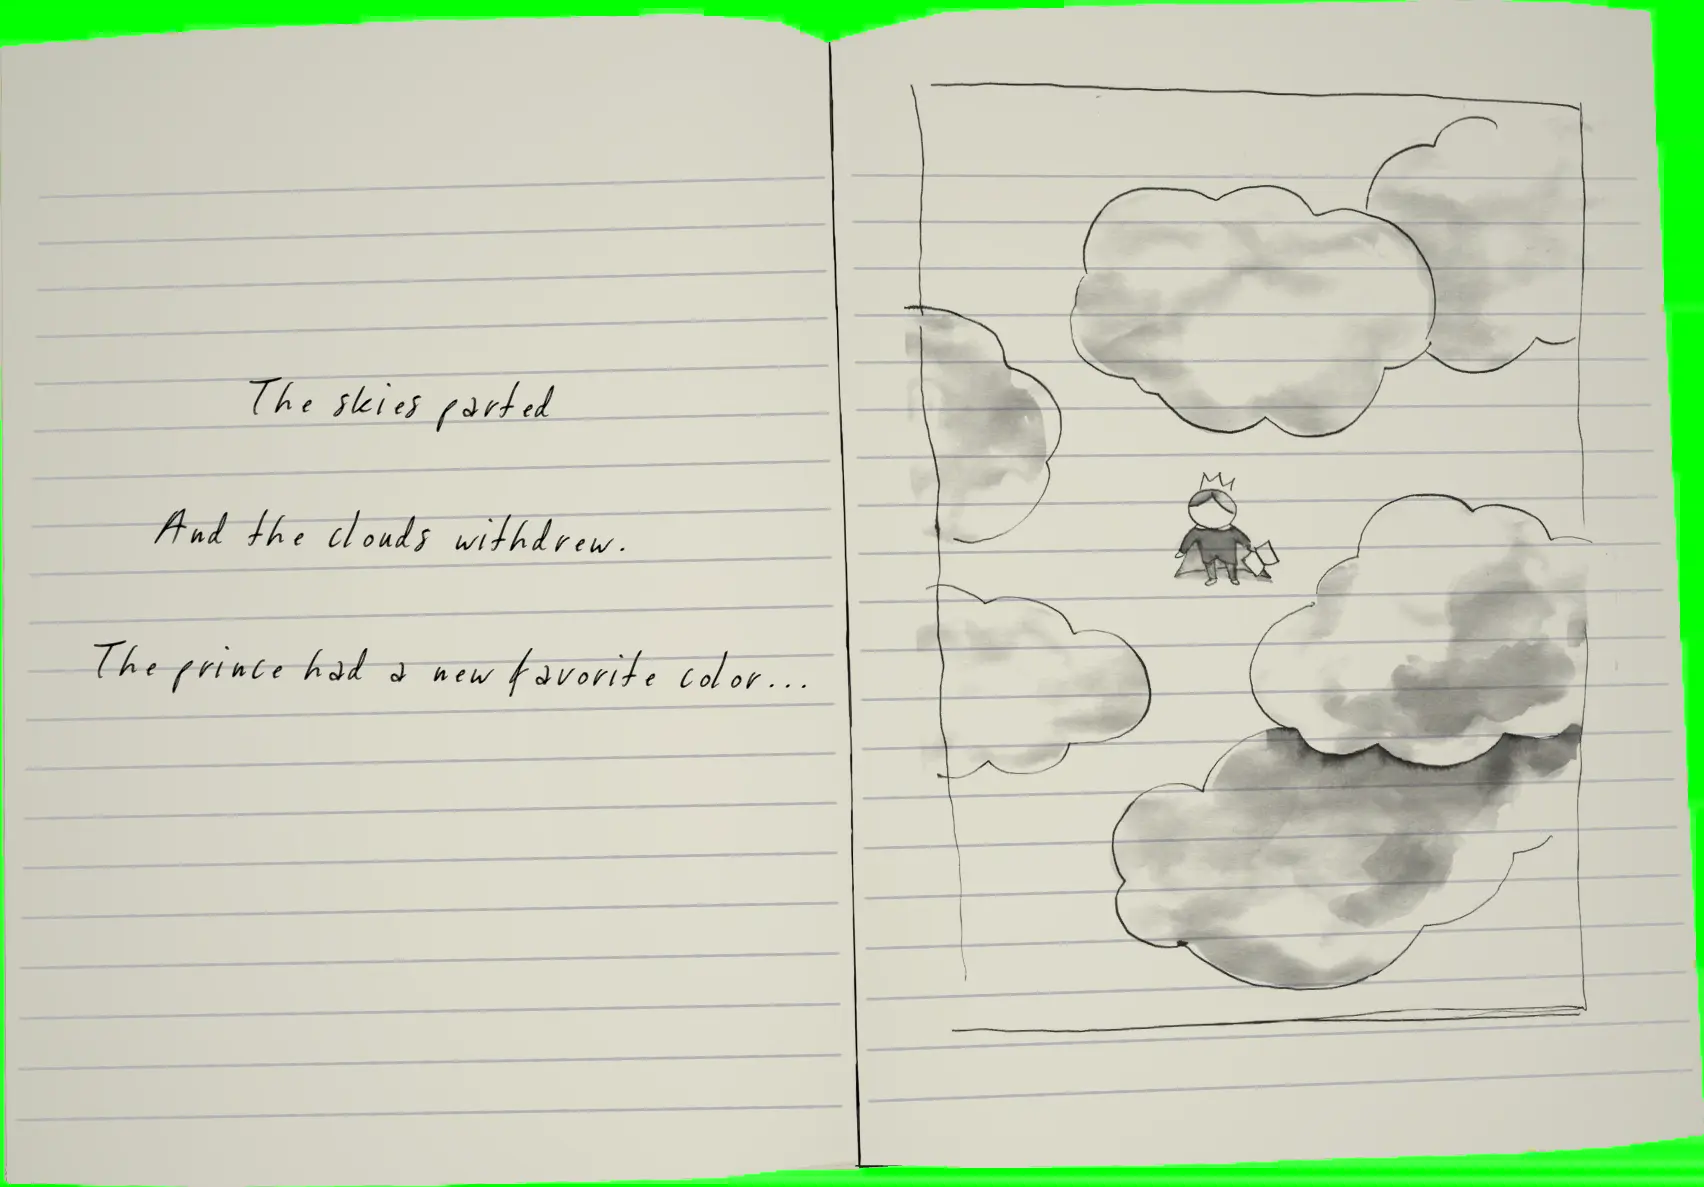 The skies parted
And the clouds withdrew.
The prince had a new favorite color...